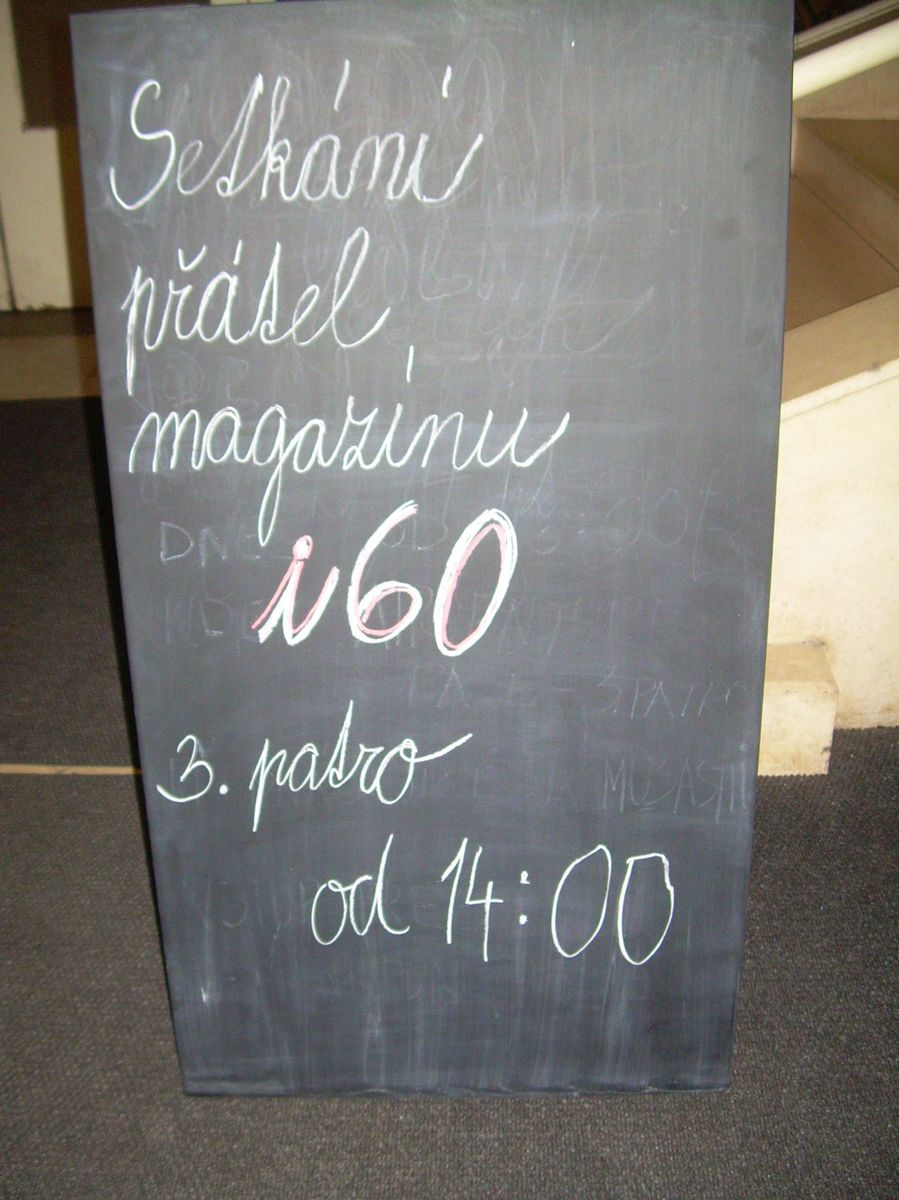 Setkání
přátel
magazínu
i60
3. patro
od 14:00